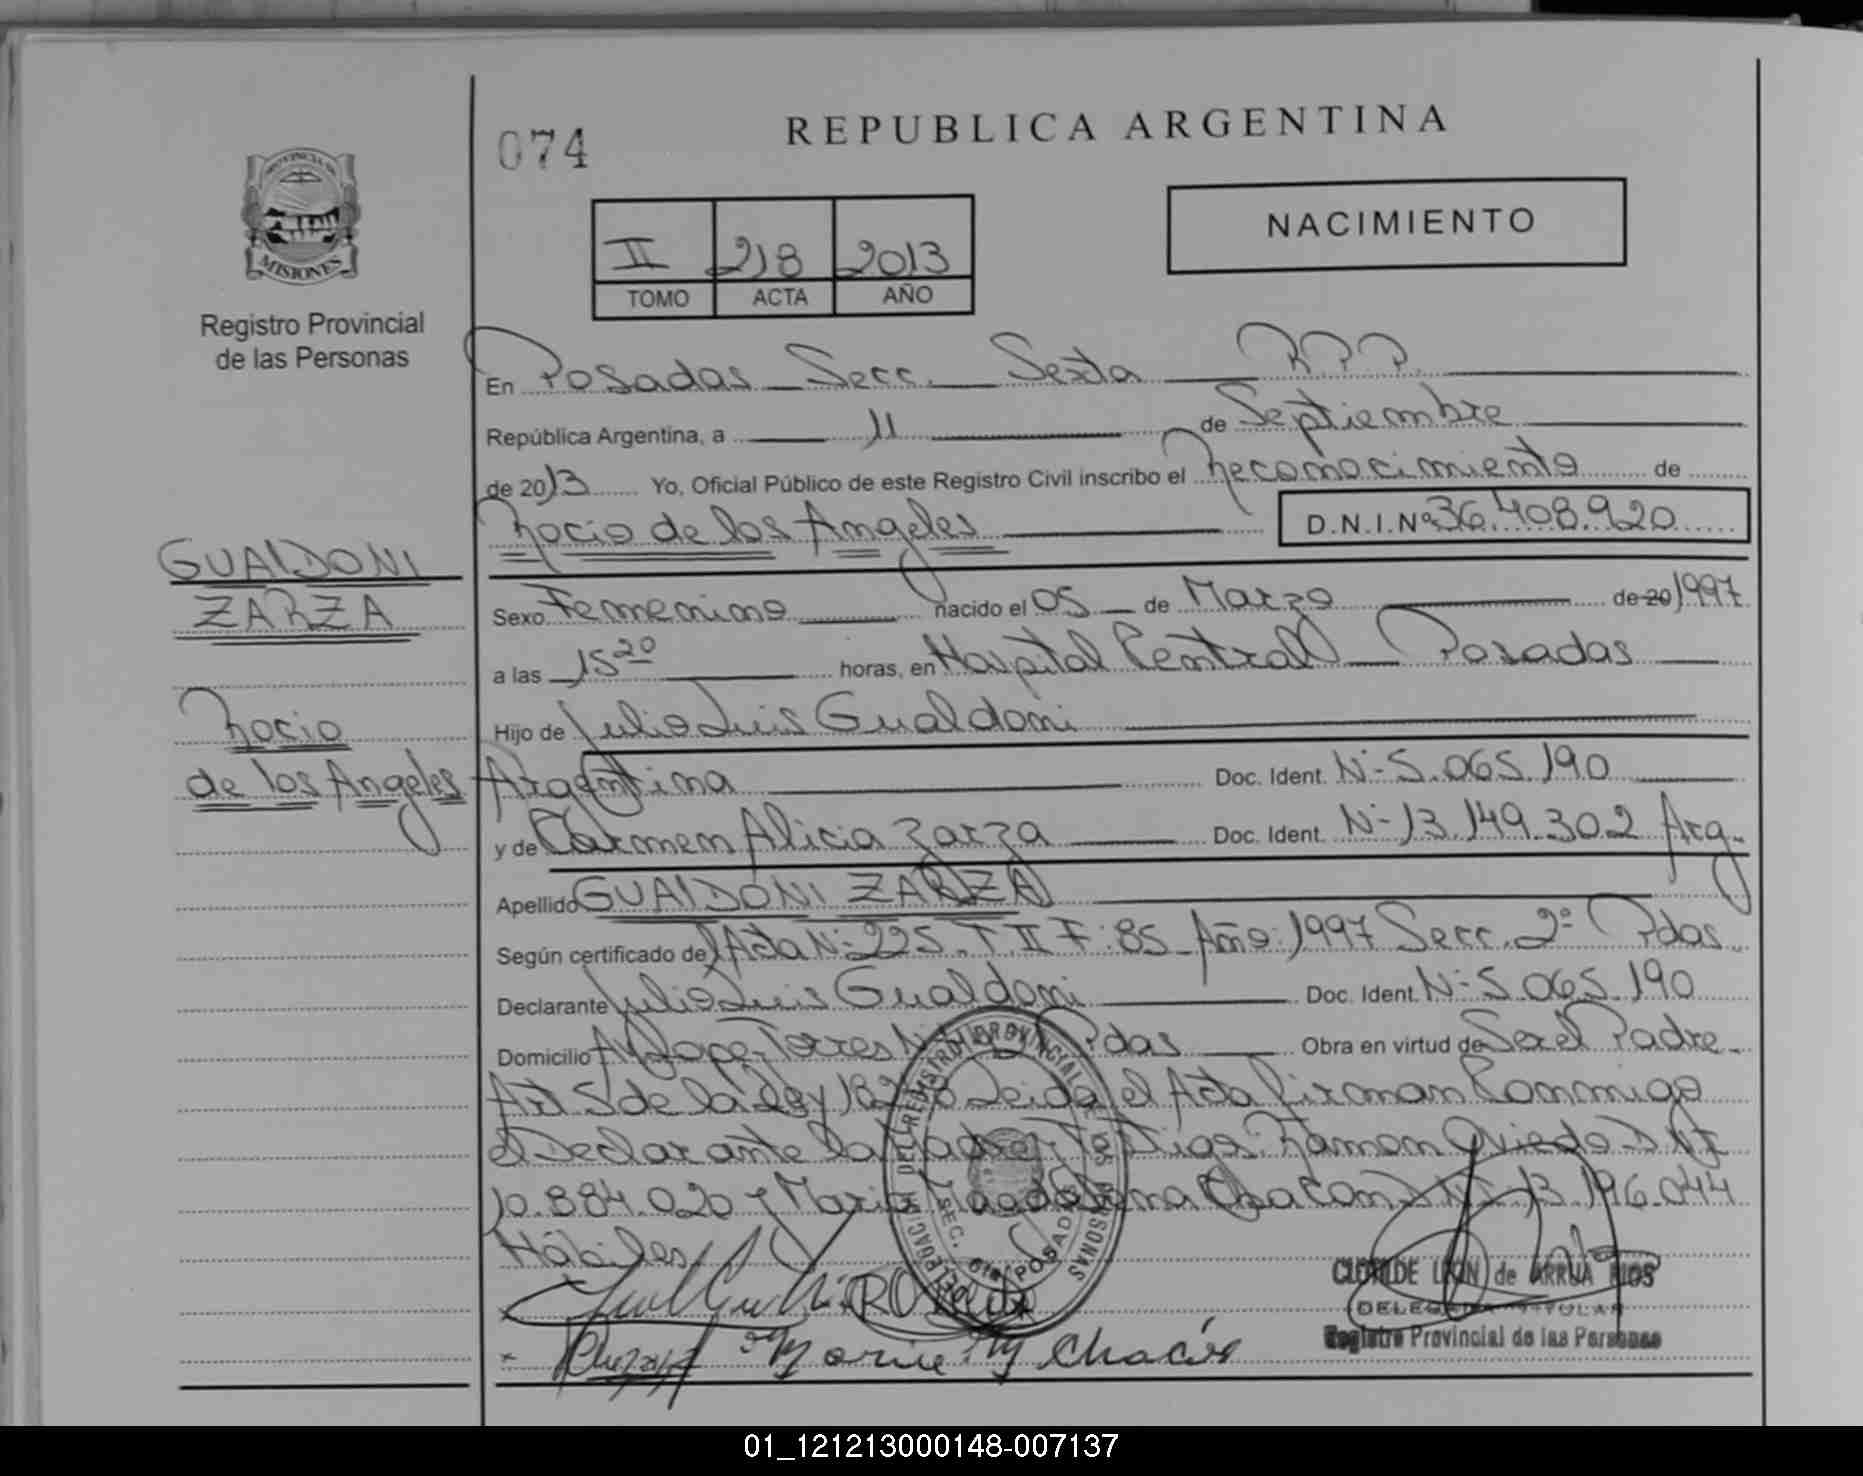 074
REPUBLICA ARGENTINA
PROVINCIA DE
MISIONES
Registro Provincial
de las Personas
NACIMIENTO
II 218 2013
TOMO ACTA AÑO
En Posadas Secc. Sexta R.P.P.
República Argentina, a 11 de Septiembre
de 2013 Yo, Oficial Público de este Registro Civil inscribo el Reconocimiento de
Rocio de los Angeles D.N.I.Nº 36.408.920
GUALDONI
ZARZA
Rocio
de los Angeles
Sexo Femenino nacido el 05 de Marzo de 20 1997
a las 15 20 horas, en Hospital Central Posadas
Hijo de Julio Luis Gualdoni
Argentina Doc. Ident. N- 5.065.190
y de Carmen Alicia Zarza Doc. Ident. N- 13.149.302 Arg.
Apellido GUALDONI ZARZA
Según certificado de Acta N: 225. T II F: 85 Año: 1997 Secc. 2º Pdas.
Declarante Julio Luis Gualdoni Doc. Ident. N- 5.065.190
Domicilio Torres Pdas Obra en virtud de Ser el Padre.
Art 5 de la Ley Leida el Acta Firman Conmigo
el Declarante la Madre, Testigos: Ramon Oviedo DNI
10.884.020 y Maria Magdalena Chacon DNI 13.196.044
Hábiles
Maria M Chacón
DELEGACION DEL REGISTRO PROVINCIAL DE LAS PERSONAS
SEC. 6ta POSADAS
CLOTILDE LEON de ARRUA RIOS
DELEGADA TITULAR
Registro Provincial de las Personas
01_121213000148-007137